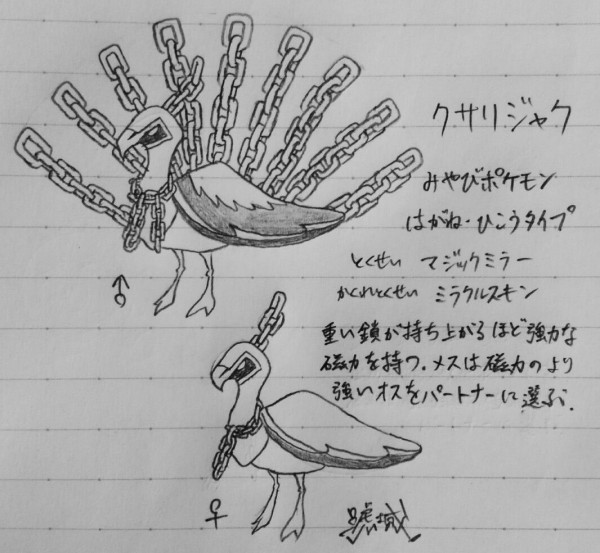 クサリジャク
みやびポケモン
はがね・ひこうタイプ
とくせい マジックミラー
かくれとくせい ミラクルスキン
重い鎖が持ち上がるほど強力な
磁力を持つ。メスは磁力のより
強いオスをパートナーに選ぶ。
♂
♀